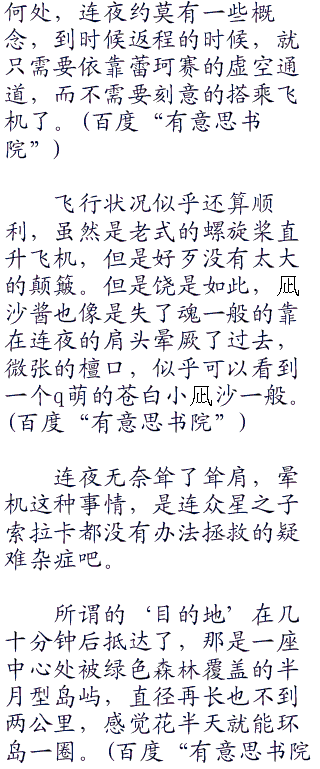 何处，连夜约莫有一些概
念，到时候返程的时候，就
只需要依靠蕾珂赛的虚空通
道，而不需要刻意的搭乘飞
机了。(百度“有意思书
院”)
飞行状况似乎还算顺
利，虽然是老式的螺旋桨直
升飞机，但是好歹没有太大
的颠簸。但是饶是如此，凪
沙酱也像是失了魂一般的靠
在连夜的肩头晕厥了过去，
微张的檀口，似乎可以看到
一个q萌的苍白小凪沙一般。
(百度“有意思书院”)
连夜无奈耸了耸肩，晕
机这种事情，是连众星之子
索拉卡都没有办法拯救的疑
难杂症吧。
所谓的‘目的地’在几
十分钟后抵达了，那是一座
中心处被绿色森林覆盖的半
月型岛屿，直径再长也不到
两公里，感觉花半天就能环
岛一圈。(百度“有意思书院